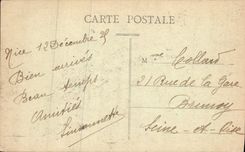 CARTE POSTALE
Nice 12 Décembre 25
Bien arrivés
Beau temps
Amitiés
M me Collard
21 Rue de la Gare
Brunoy
Seine-et-Oise